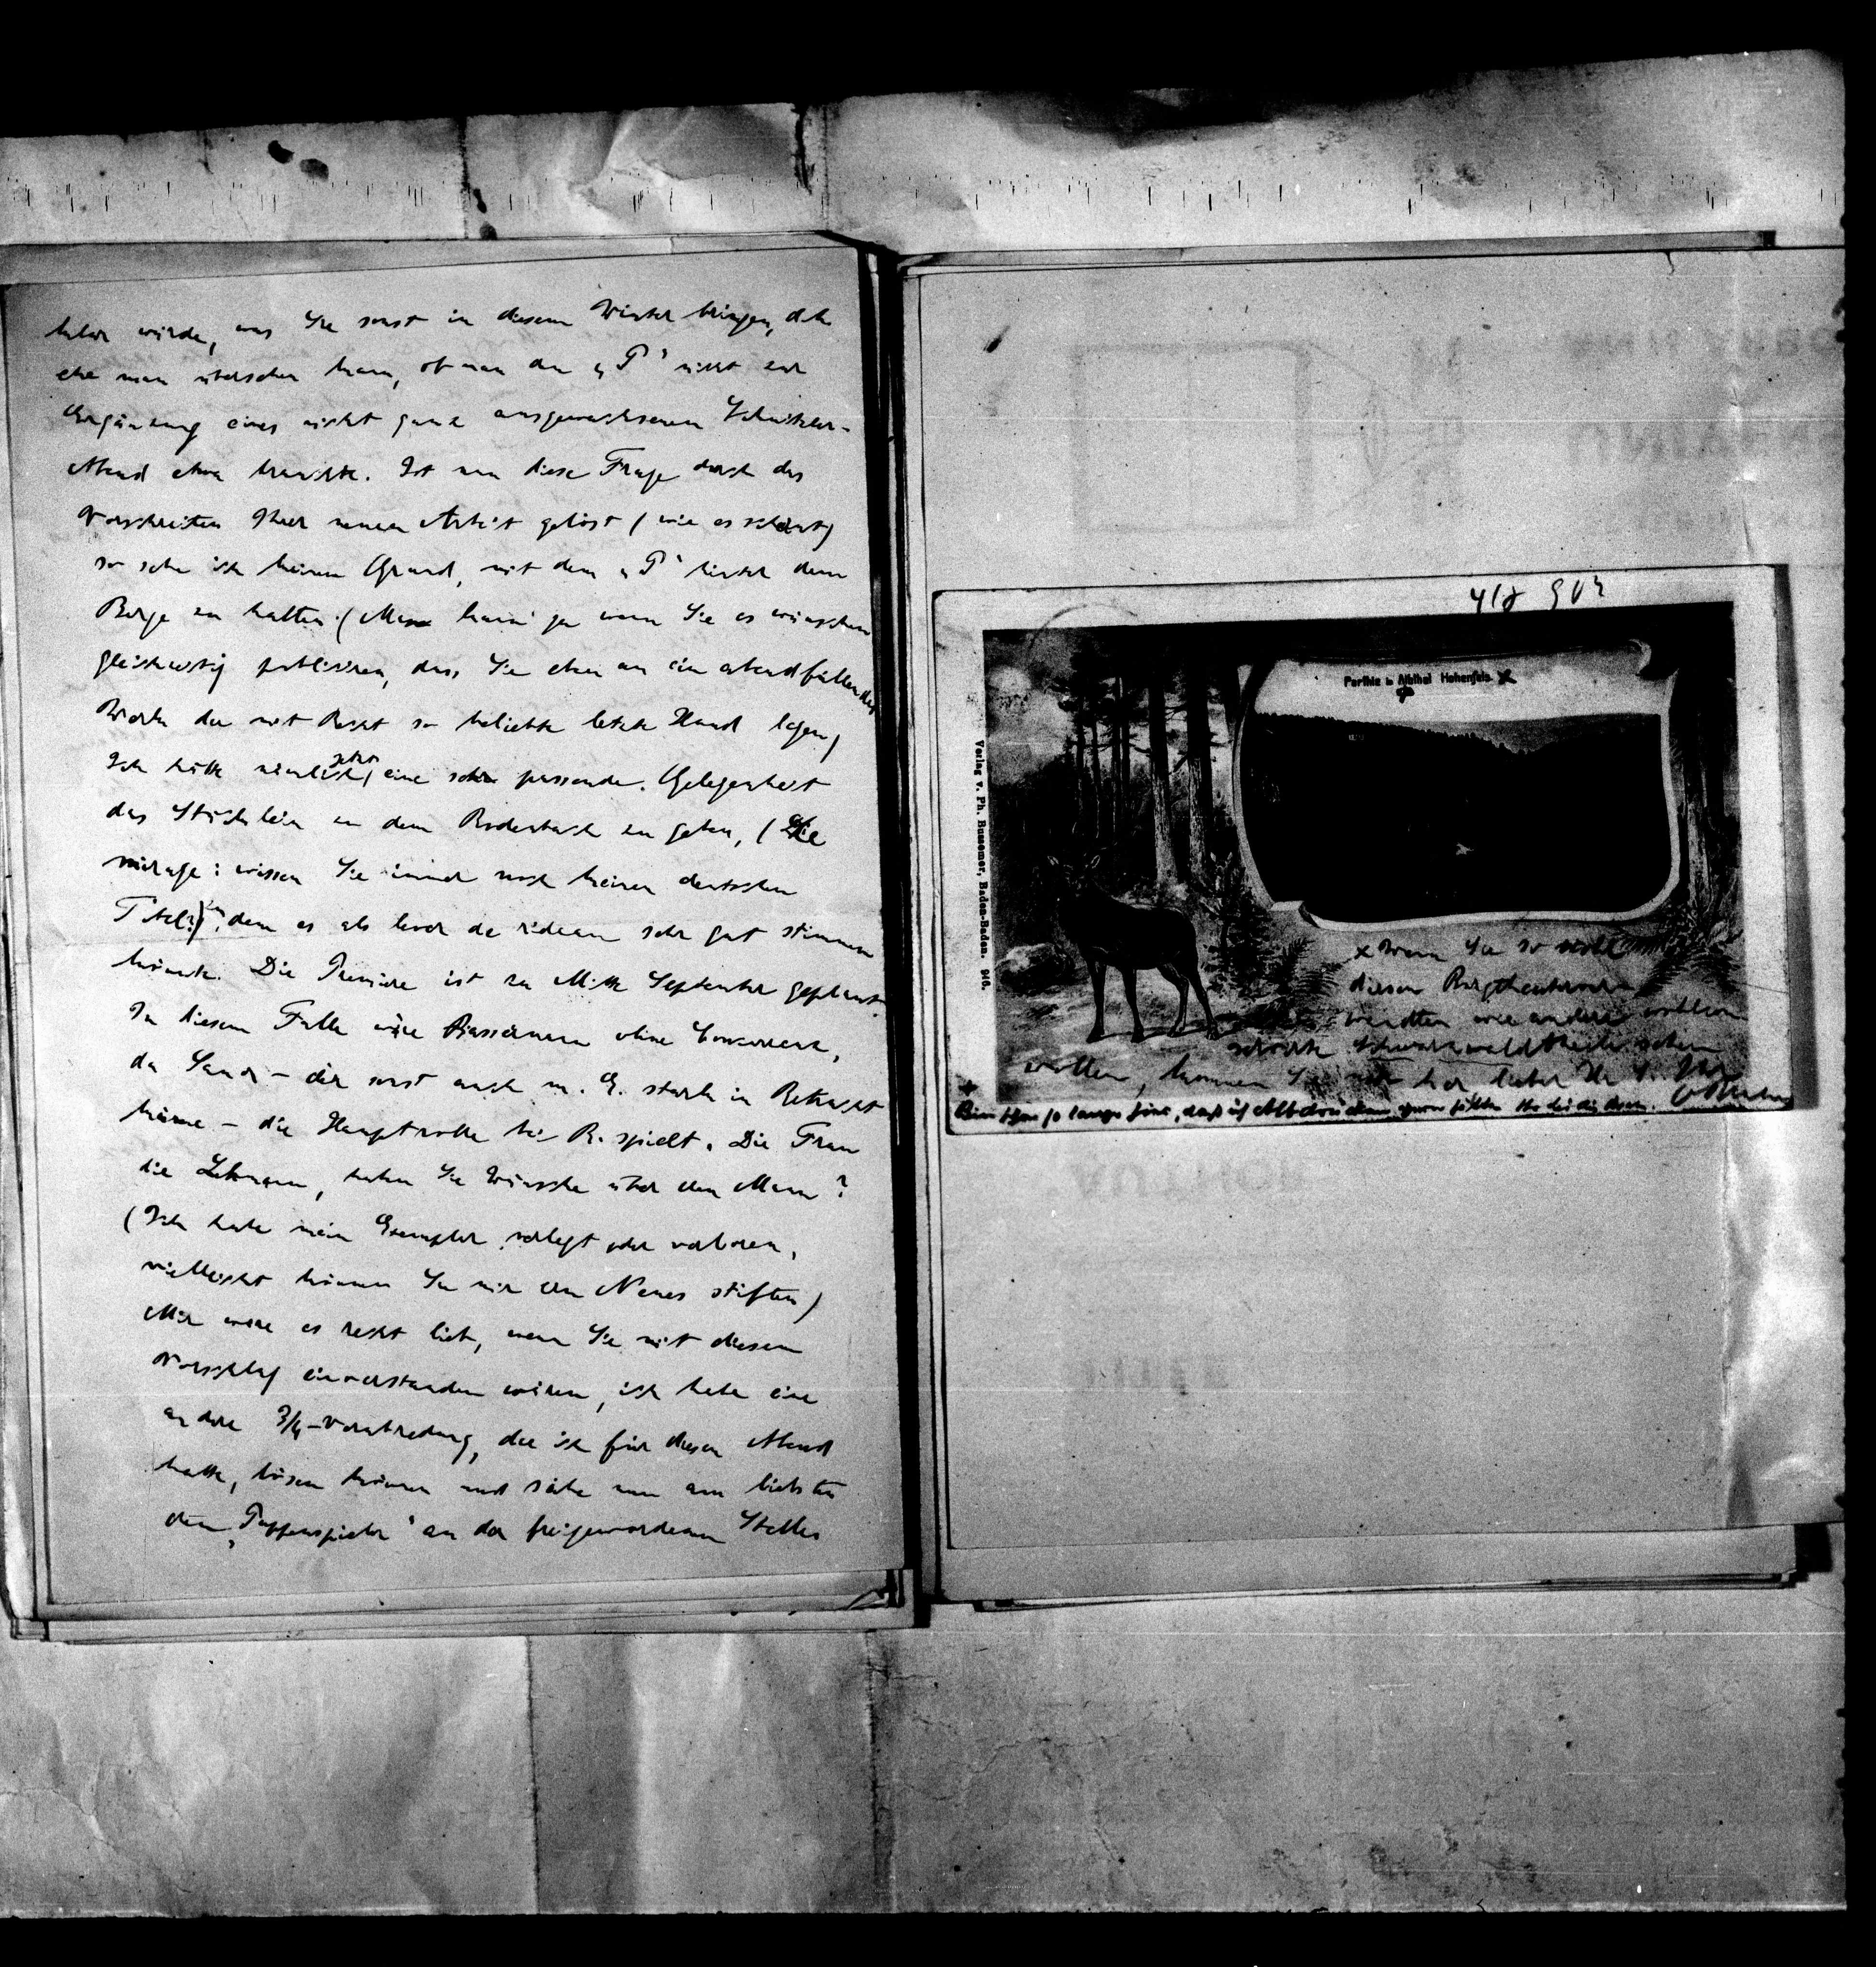 klar würde, was Sie sonst in diesem Winter bringen, d. h.
ehe man übersehen kann, ob man den „P“ nicht zur
Ergänzung eines nicht ganz ausgewachsenen Schnitzler-
Abend etwa brauchte. Ist nun diese Frage durch das
Vorschreiten Ihrer neuen Arbeit gelöst (wie es scheint)
so sehe ich keinen Grund, mit dem „P“ hinter dem
Berge zu halten. (Man kann ja wenn Sie es wünschen
gleichzeitig publiziren, dass Sie eben an ein abendfüllendes
Werk die mit Recht so beliebte letzte Hand legen)
Ich hätte nämlich schon eine sehr passende Gelegenheit
das Stücklein zu dem Bodenbach zu geben, (Die
mirage: wissen Sie immer noch keinen deutschen
Titel?) zu dem es als lever de rideau sehr gut stimmen
könnte. Die Première ist zu Mitte September geplant.
In diesem Falle wäre Bassermann ohne Concurrenz,
da Sauer – der sonst auch m. E. stark in Betracht
käme – die Hauptrolle bei R. spielt. Die Frau
die Lehmann, haben Sie Wünsche über den Mann?
(Ich habe mein Exemplar verlegt oder verloren,
vielleicht können Sie mir ein Neues stiften)
Mir wäre es recht lieb, wenn Sie mit diesem
Vorschlag einverstanden wären, ich habe eine
andere 3/4-Verabredung, die ich für diesen Abend
hatte, lösen können und sähe nun am liebsten
den „Puppenspieler“ an der freigewordenen Stelle.
Parthie i. Albthal Hohenfels x
Verlag v. Ph. Bussemer, Baden-Baden. 946.
x Wenn Sie so
diesen
wollen
Schwarzwaldtheile sehen
wollen, kommen Sie her lieber Dr S. Ihr
Bin schon so lange hier, daß ich